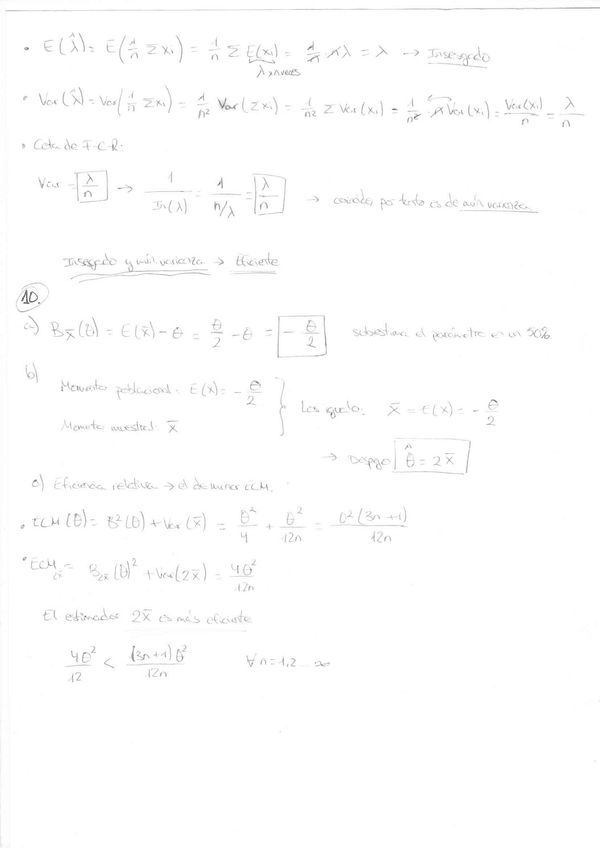 • E(λ̂) = E(1/n Σxi) = 1/n Σ E(xi) = 1/n nλ = λ → Insesgado
λ x n veces
• Var(λ̂) = Var(1/n Σxi) = 1/n² Var(Σxi) = 1/n² Σ Var(xi) = 1/n² n Var(xi) = Var(xi)/n = λ/n
• Cota de F-C-R:
Var = λ/n → 1/In(λ) = 1/n/λ = λ/n → coincide, por tanto es de mín. varianza
Insesgado y mín. varianza → Eficiente
10.
a) Bx̄(θ) = E(x̄) - θ = θ/2 - θ = - θ/2 subestima el parámetro en un 50%
b)
Momento poblacional: E(x) = - θ/2
Momento muestral: x̄
Los igualo: x̄ = E(x) = - θ/2
→ Despejo θ̂ = 2x̄
c) Eficiencia relativa → el de menor ECM.
• ECM(θ) = B²(θ) + Var(x̄) = θ²/4 + θ²/12n = θ²(3n+1)/12n
• ECM2x̄ = B2x̄(θ)² + Var(2x̄) = 4θ²/12n
El estimador 2x̄ es más eficiente
4θ²/12 < (3n+1)θ²/12n ∀n=1,2 ... ∞